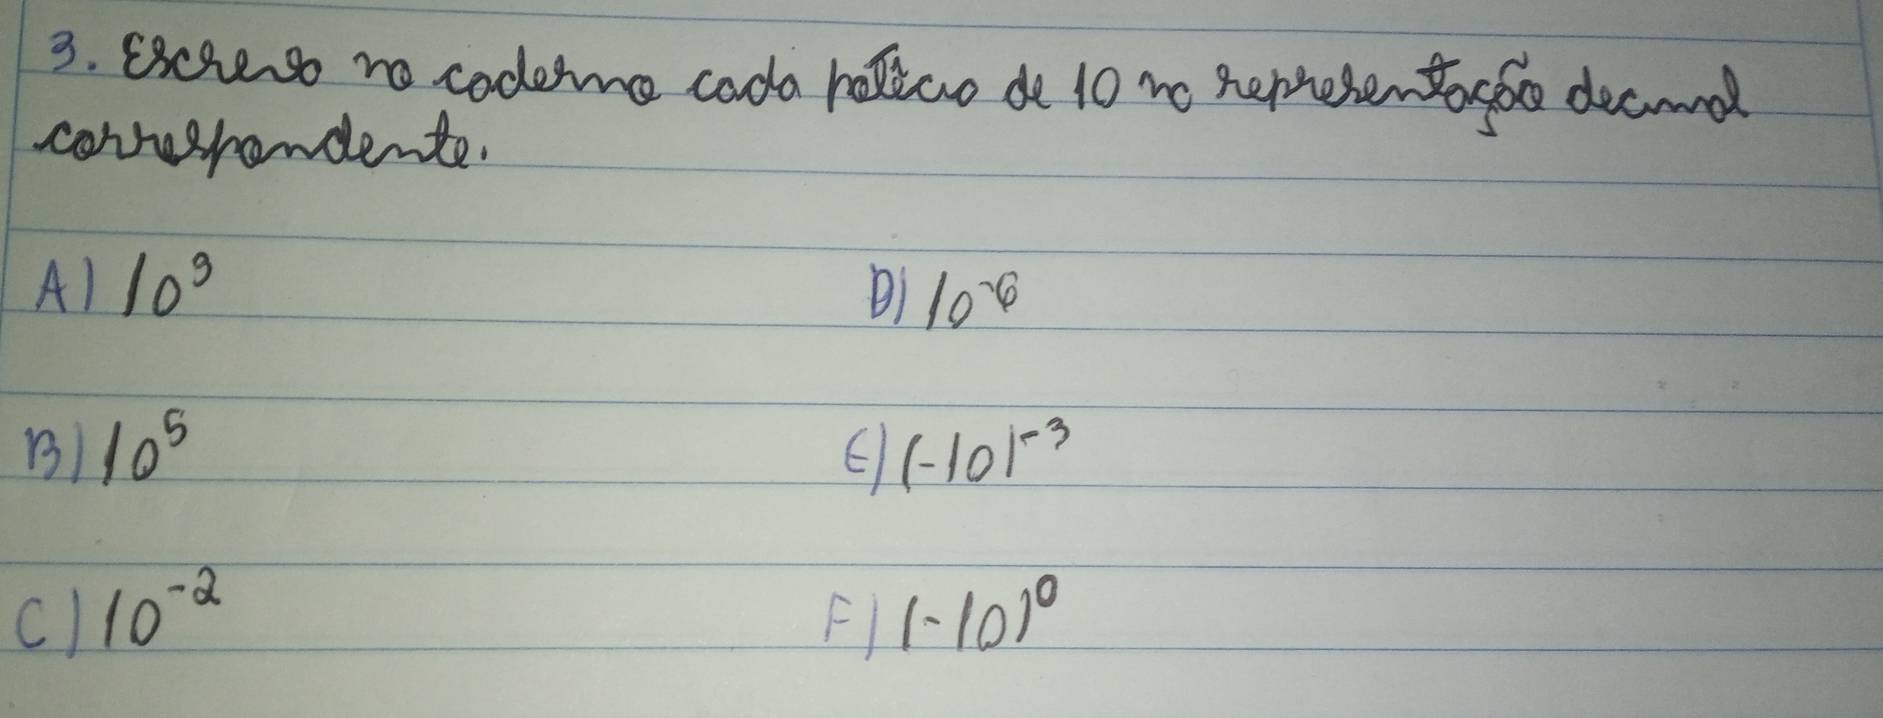 3. Escreva no caderno cada potência de 10 na representação decimal
correspondente.
A) 10⁹
D) 10⁻⁶
B) 10⁵
E) (-10)⁻³
C) 10⁻²
F) (-10)⁰